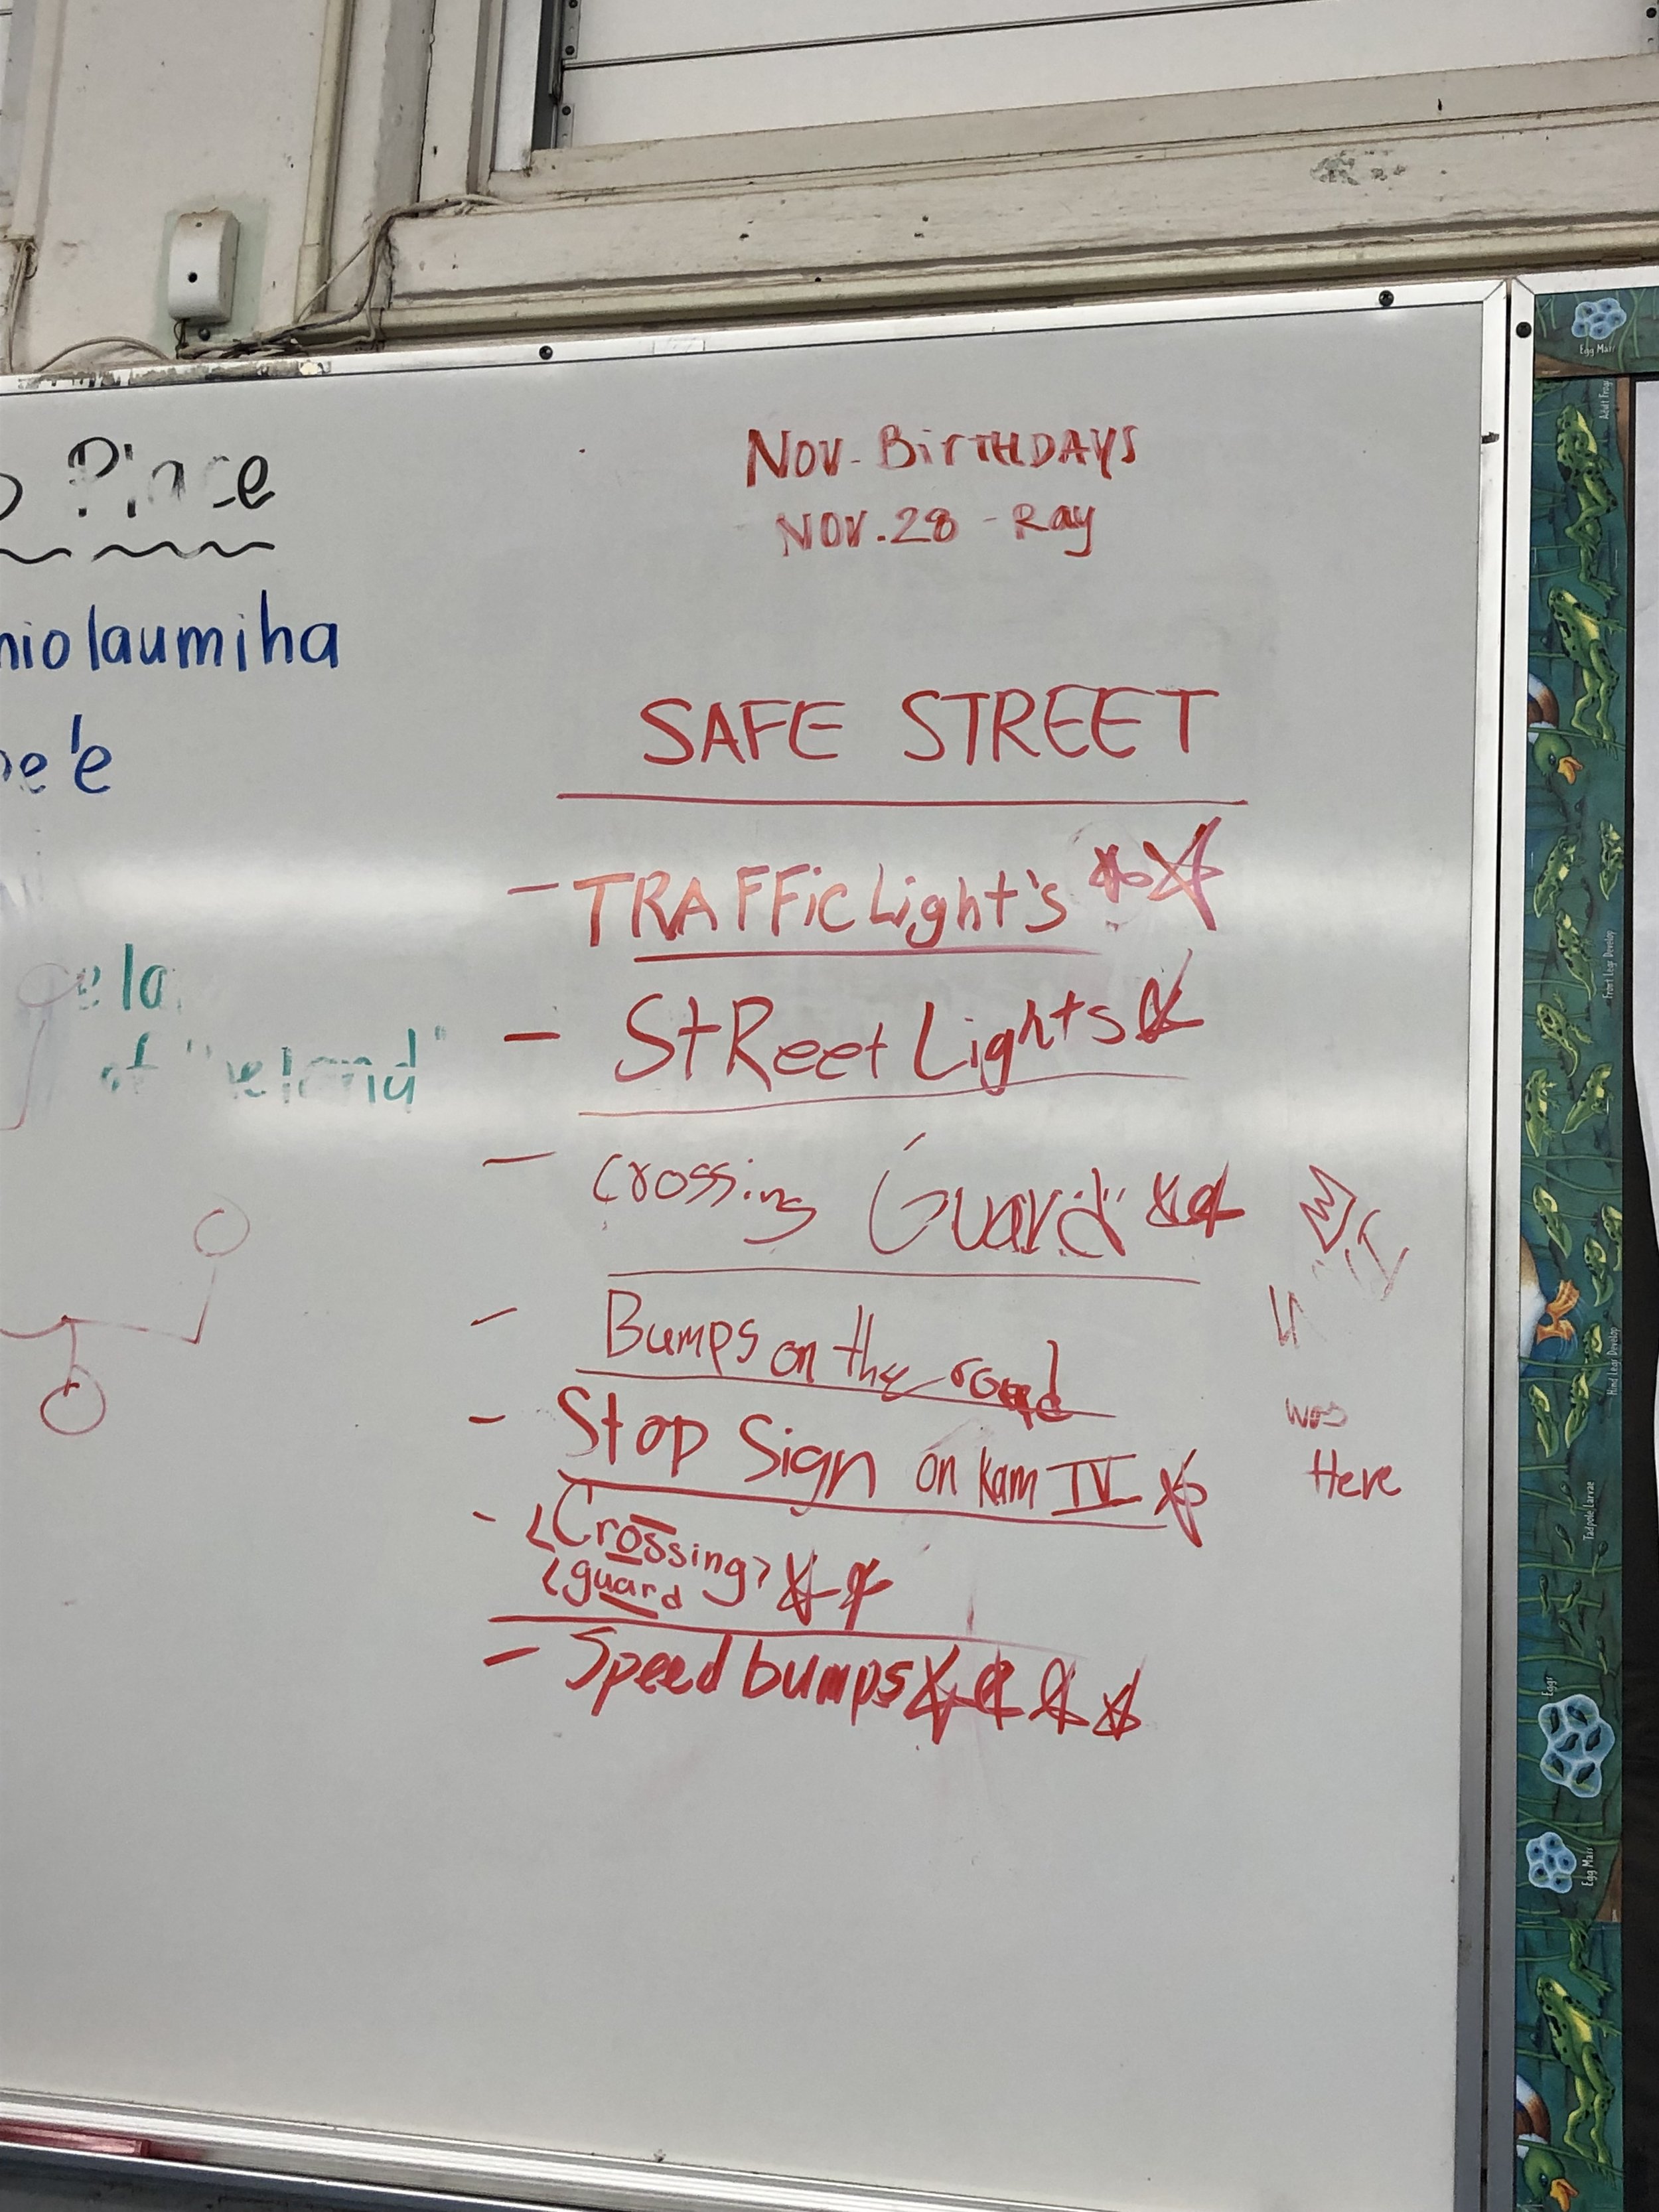 Place
niolaumiha
e'e
ela
of "eland"
Nov. BirTHDAYS
NOV. 28 - Ray
SAFE STREET
- TRAFFic Light's
- StReet Lights
- crossing Guard
- Bumps on the road
- Stop Sign on Kam IV
- <Crossing>
<guard
- Speed bumps
was
Here
Egg Mass
Adult Frog
Front Legs Develop
Hind Legs Develop
Tadpole Larvae
Eggs
Egg Mass